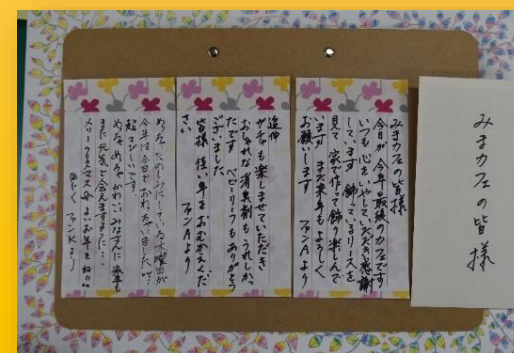 みまカフェの皆様
みまカフェの皆様
今日が今年最後のカフェです
いつも心をいやしていただき感謝
しています 飾っているリースを
見て家で作って飾り楽しんで
います また来年もよろしく
お願いします ファンAより
追伸
ガチャも楽しませていただき
おしゃれな消臭剤もうれしかっ
たです ベビーリーフもありがとう
ございました
皆様 佳い年をおむかえくだ
さい ファンAより
めっちゃたのしみにしている水曜日が
今年は今日でおわっちゃいました
さびしいです。
めちゃめちゃかわいいみなさんに来年も
また元気で会えますように…
メリークリスマス よいお年を
ファンKより